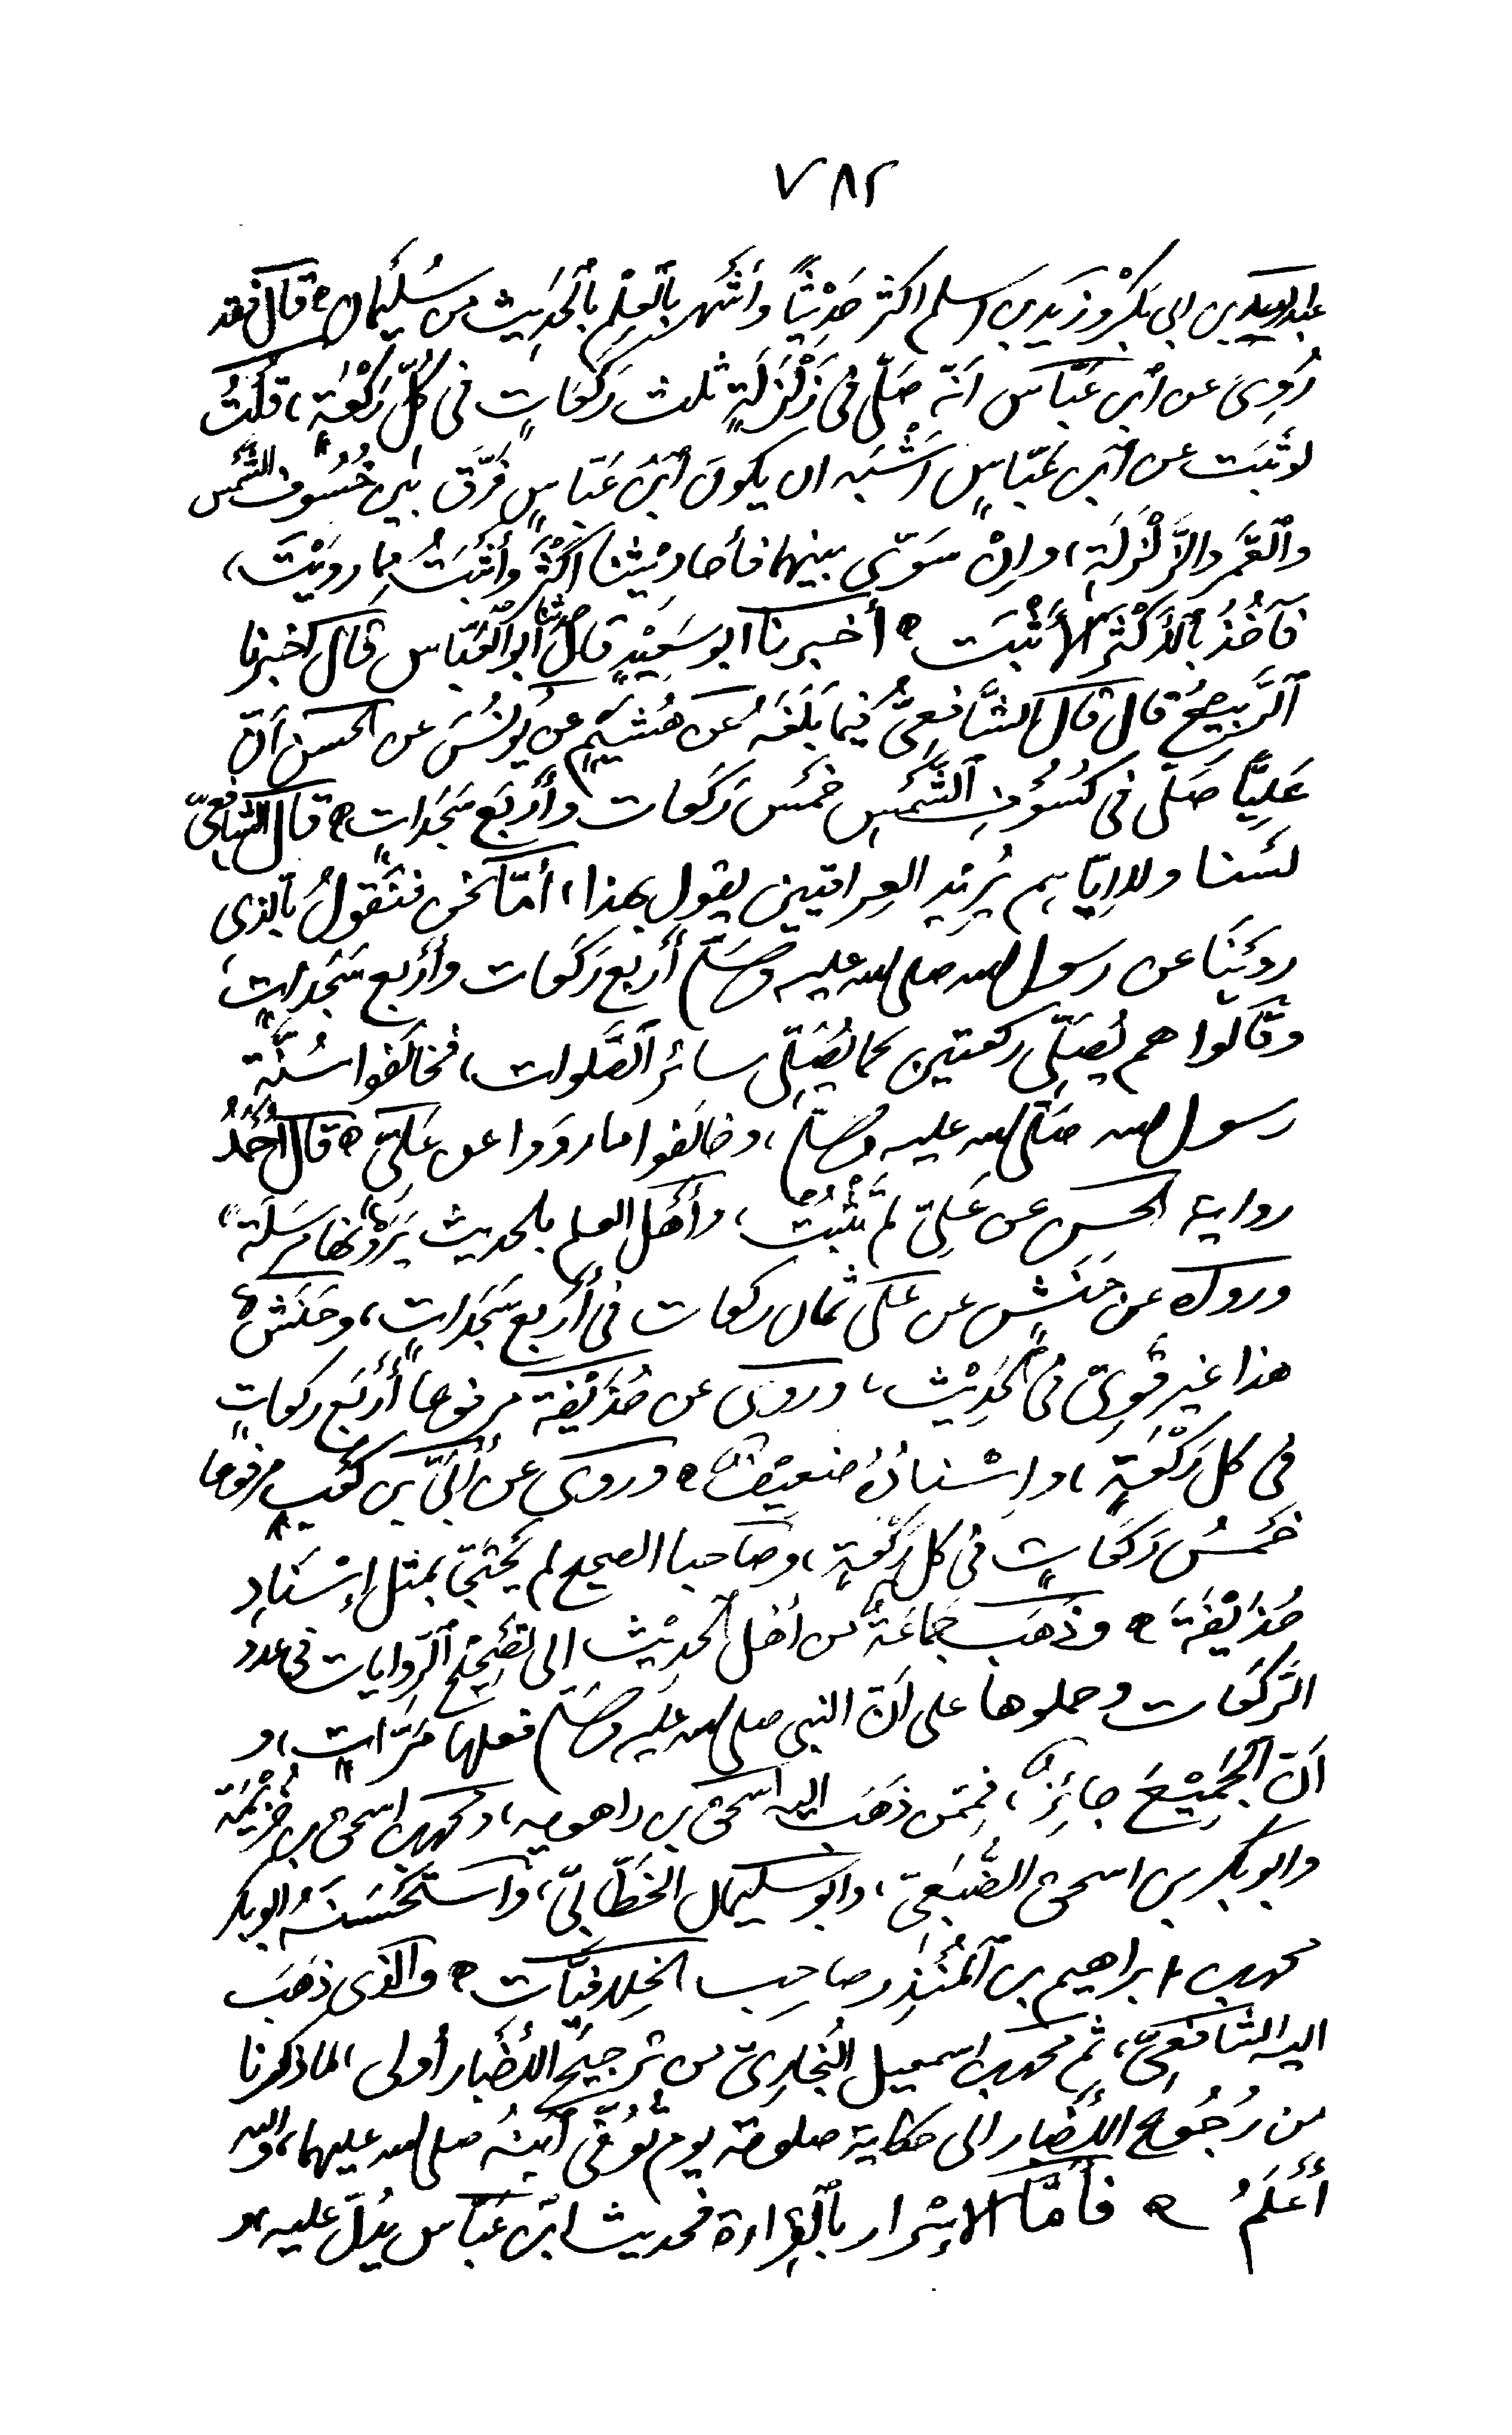 ٧٨٢
عبد الله بن ابى بكر وزيد بن اسلم اكثر حديثًا وأشهر بالعلم بالحديث من سليمان ه قال فقد
رُوِىَ عن ابن عبّاس انّه صلّى فى زلزلةٍ ثلث ركعاتٍ فى كلّ ركعةٍ، قلتُ
لو ثبت عن ابن عبّاسٍ أشبه ان يكون ابن عبّاسٍ فرّق بين خُسُوف الشمس
والقمر والزّلزلة، وإن سوّى بينهما فأحاديثنا أكثر وأثبتُ مما رويتَ،
فآخُذُ بالأكثر الأثبت ه أخبرنا ابو سعيدٍ قال حدثنا ابو العبّاس قال اخبرنا
الرّبيعُ قال قال الشّافعىُّ فيما بلغه عن هُشيمٍ عن يونُس عن الحسن أنّ
عليًّا صلّى فى كسُوف الشّمس خمس ركعات وأربع سجداتٍ ه قال الشافعىّ
لسنا ولا إيّاهم يُريد العراقيين يقول بهذا، أمّا نحن فنقولُ بالّذى
روينا عن رسول الله صلى الله عليه وسلّم أربع ركعات وأربع سجداتٍ
وقالوا هم يُصلّى ركعتين كما يُصلّى سائر الصّلوات، فخالفوا سُنّة
رسول الله صلّى الله عليه وسلّم، وخالفوا ما رووا عن علىّ ه قال أحمدُ
رواية الحسن عن علىّ لم تثبُت، وأهل العلم بالحديث يرونها مرسلةً
وروى عن حنشٍ عن على ثمان ركعات فى أربع سجداتٍ، وحنشٌ
هذا غير قوىّ فى الحديث، وروى عن حُذيفة مرفوعاً أربع ركعاتٍ
فى كل ركعةٍ، وإسنادُهُ ضعيفٌ ه وروى عن أُبىّ بن كعبٍ مرفوعا
خمسُ ركعاتٍ فى كل ركعةٍ، وصاحبا الصحيح لم يحتجّا بمثل إسنادِ
حُذيفة ه وذهب جماعةٌ من أهل الحديث الى تصحيح الرّوايات فى عدد
الرّكعات وحملوها على أنّ النبى صلى الله عليه وسلّم فعلها مرّاتٍ، و
أنّ الجميعَ جائزٌ، فممّن ذهب اليه اسحق بن راهويه، ومحمد بن اسحق بن خزيمة
وابو بكر بن اسحق الضّبعىّ، وابو سليمان الخطّابىّ، واستحسنهُ ابو بكر
محمد بن ابراهيم بن المُنذر صاحب الخلافيّات ه والذى ذهب
اليه الشّافعىّ، ثم محمد بن اسمعيل البُخارىّ من ترجيح الأخبار أولى لما ذكرنا
من رُجُوع الأخبار الى حكاية صلوته يوم تُوُفّى ابنُهُ صلى الله عليهما، والله
أعلمُ ه فأمّا الإسْرار بالقراءة فحديث ابن عبّاس يدُلّ عليه، و